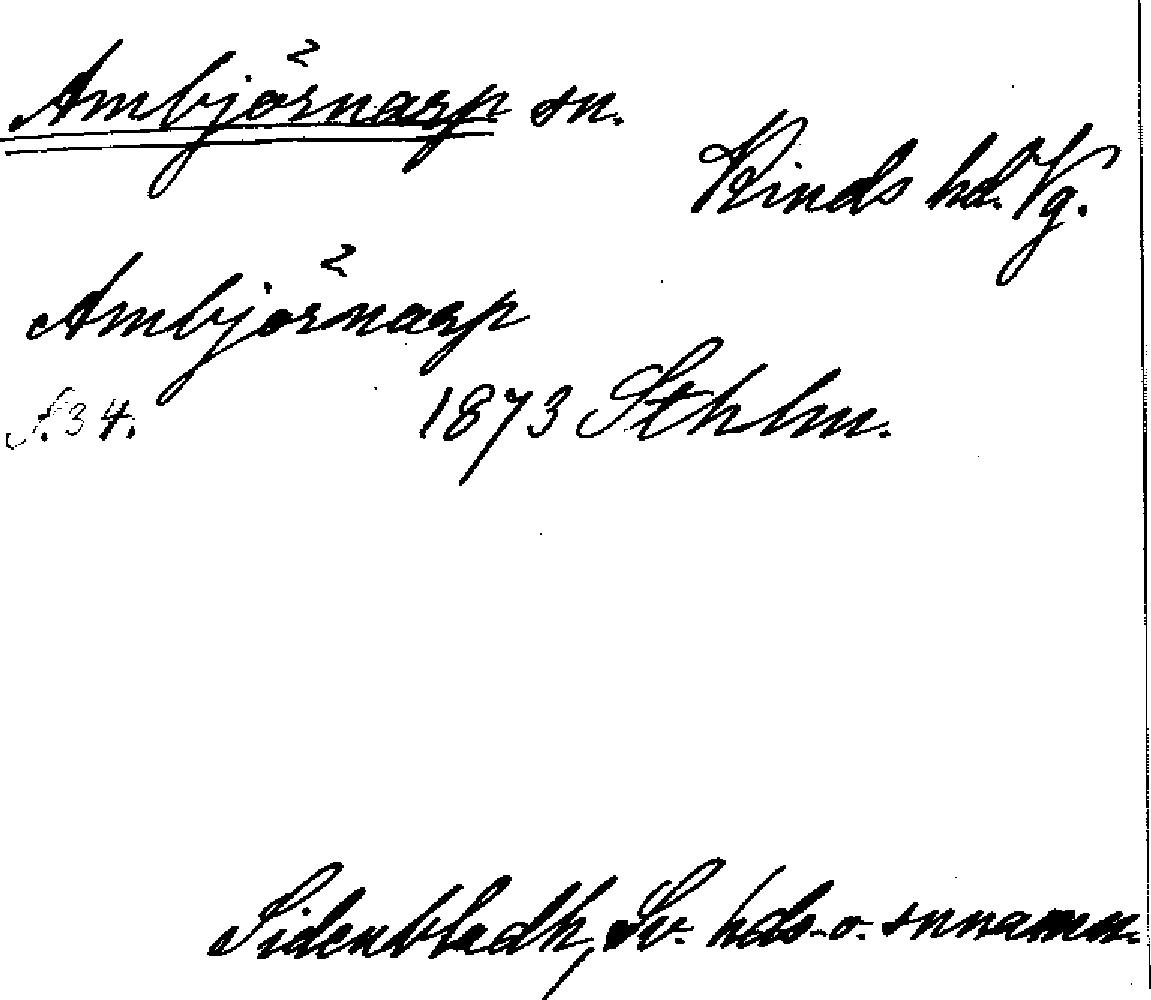 Ambjörnarp sn.
Kinds hd. Vg.
Ambjörnarp
s. 34. 1873 Sthlm.
Sidenbladh, Sv. hds- o. snnamn.